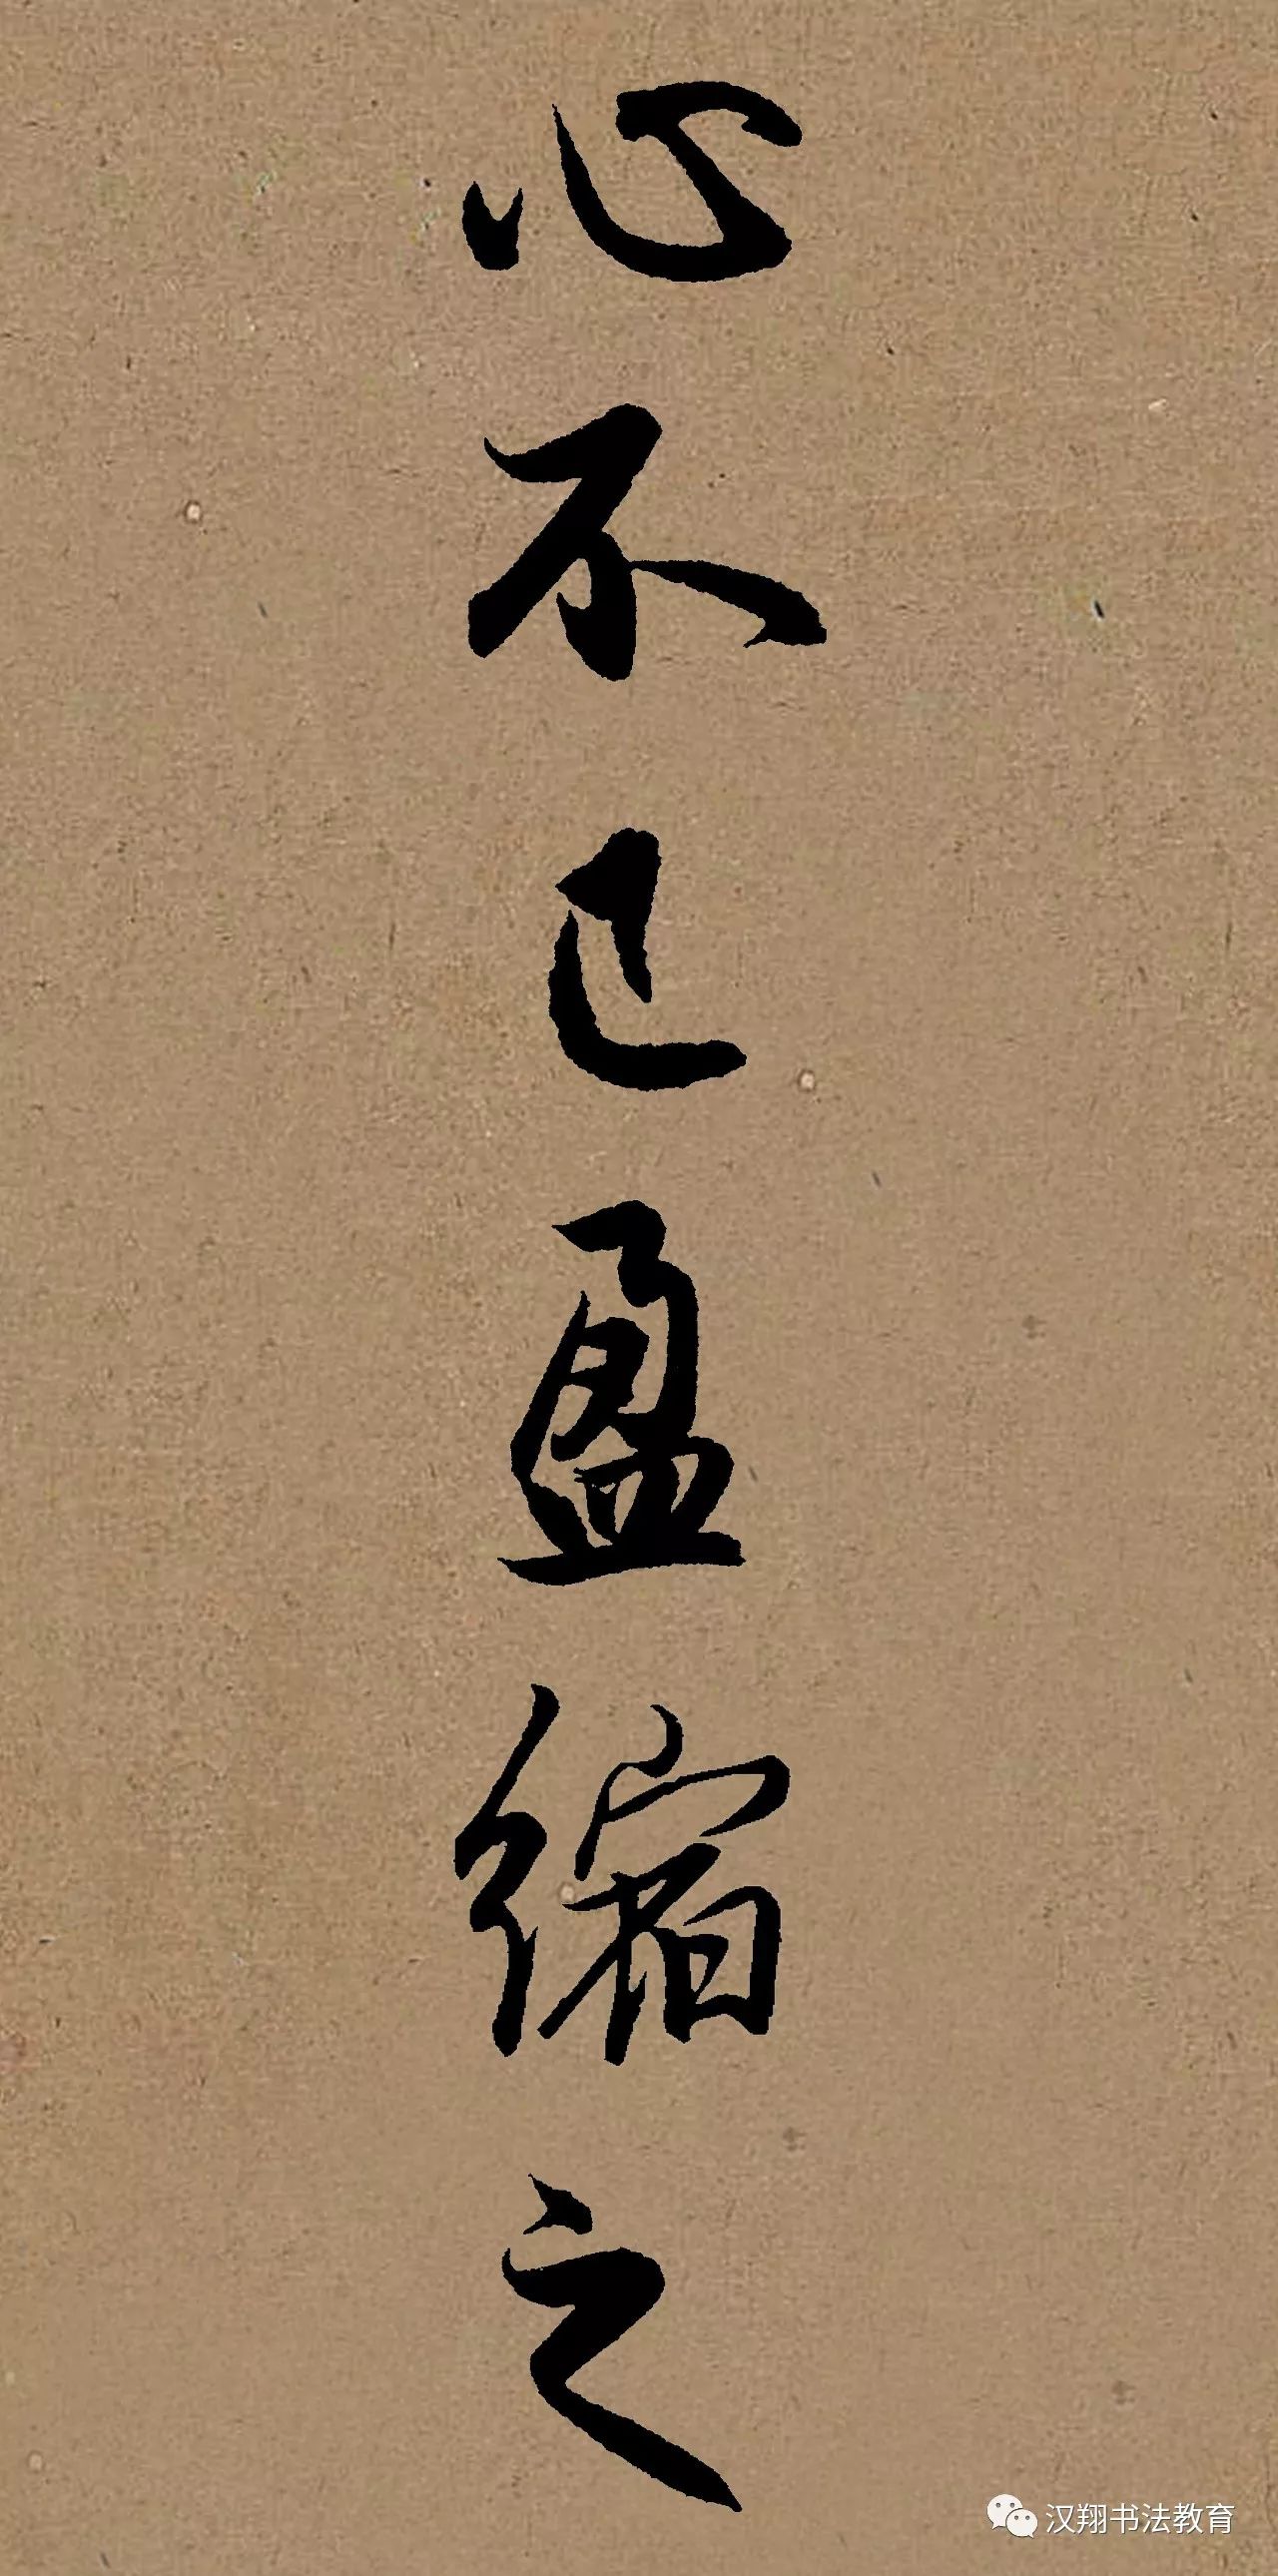 心不已盈缩之
汉翔书法教育